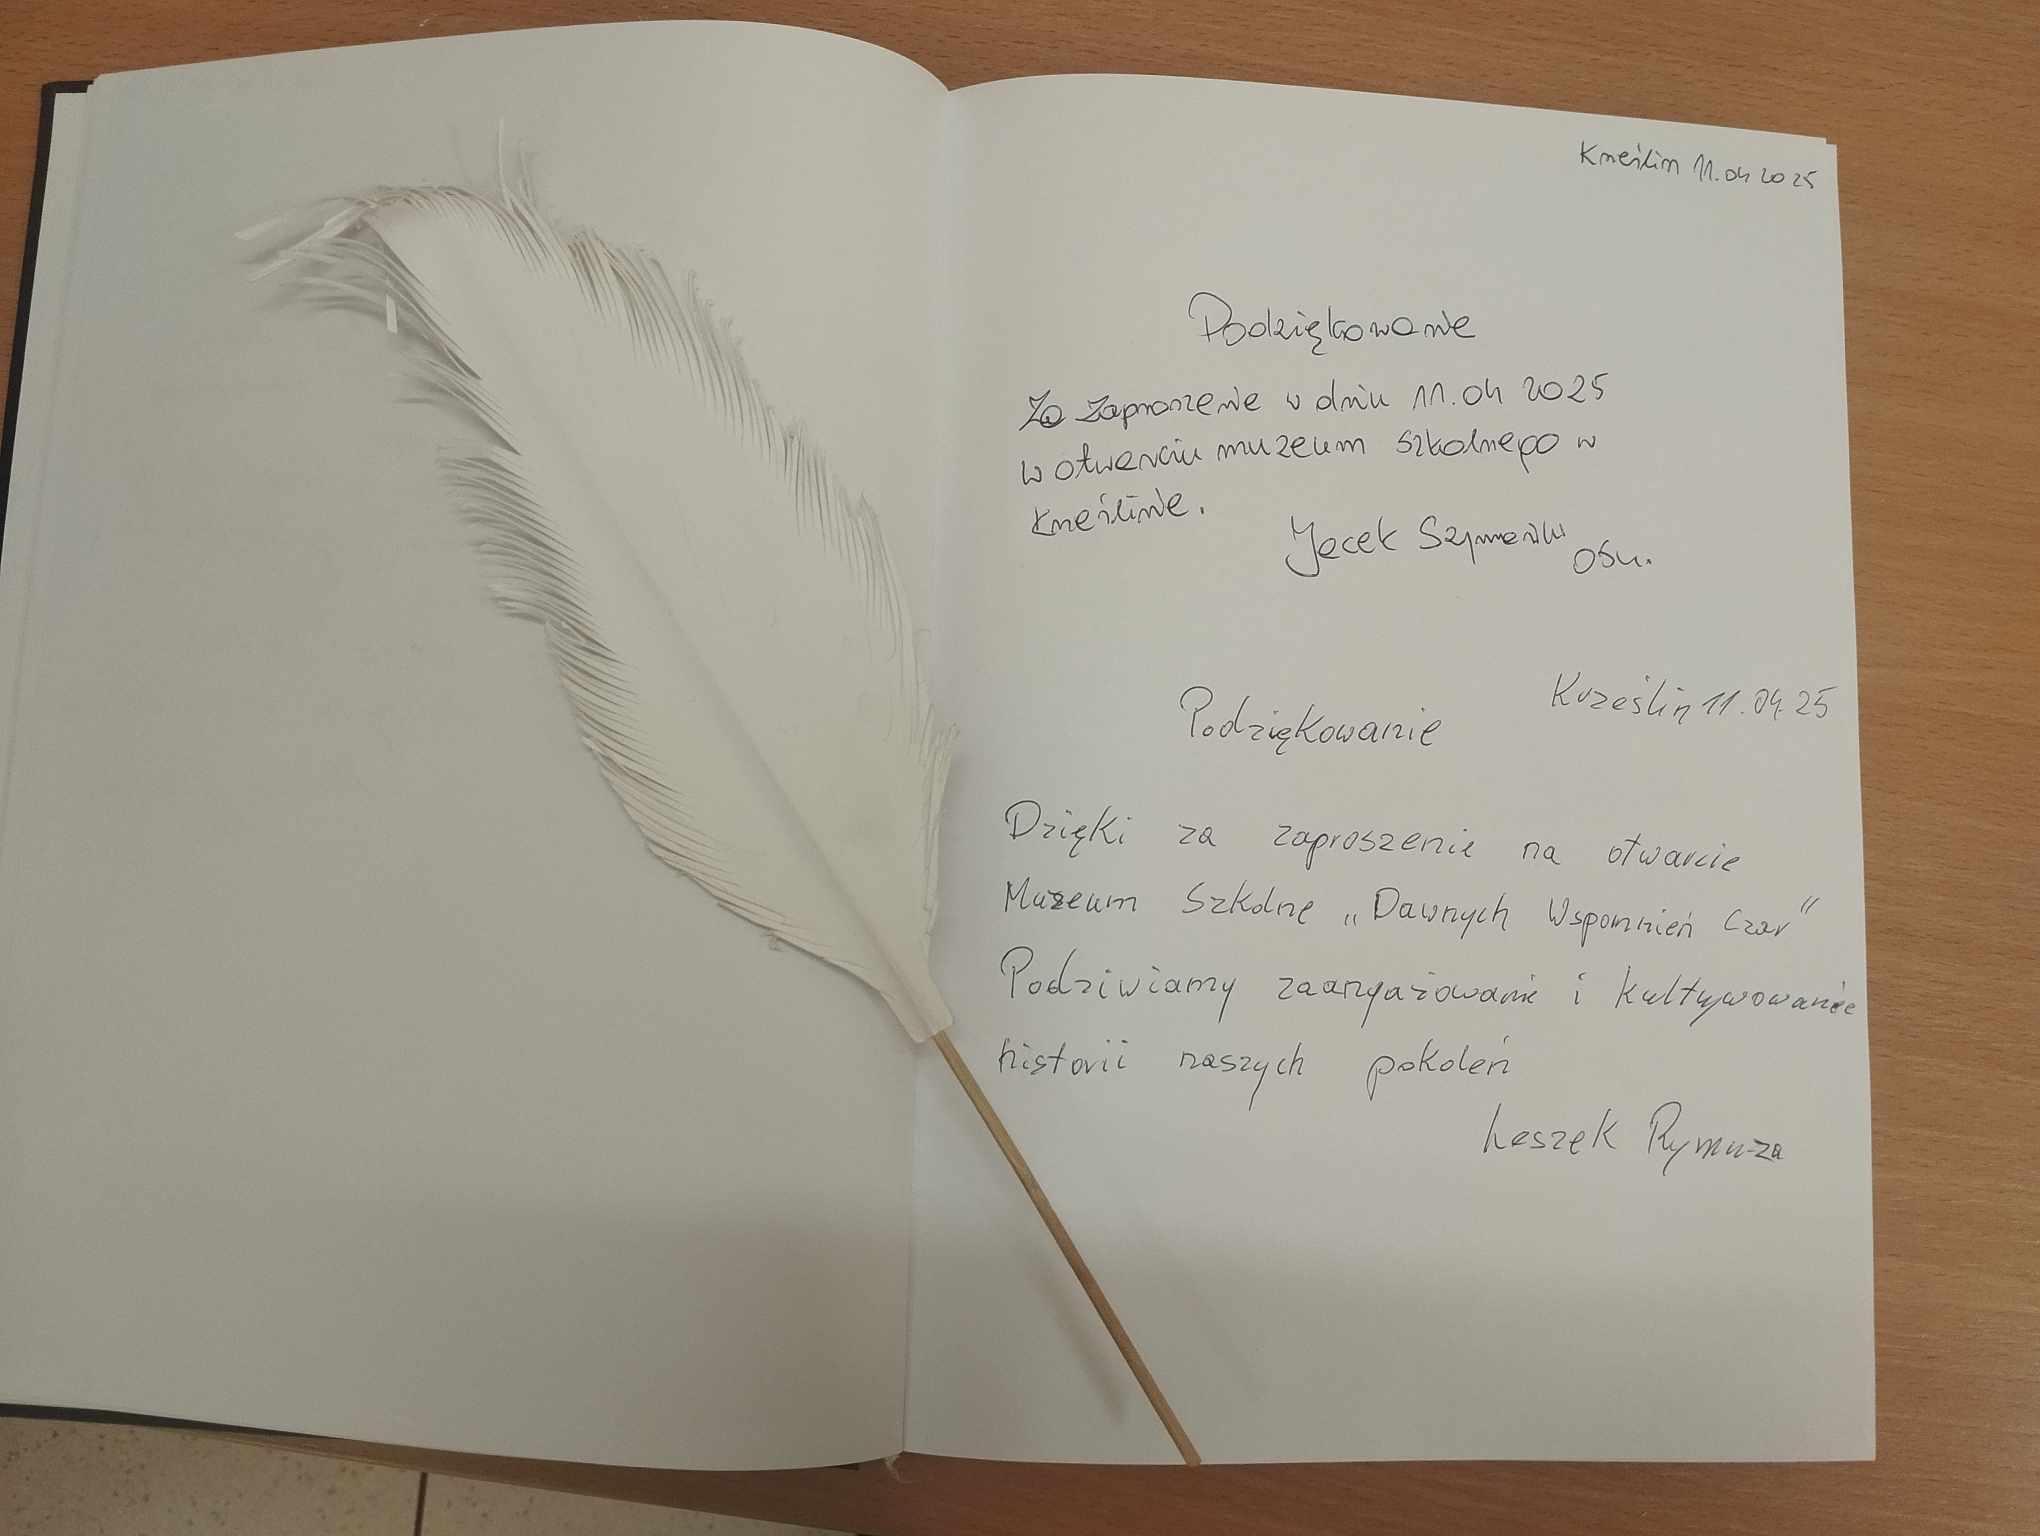 Krześlin 11.04 2025
Podziękowanie
Za zaproszenie w dniu 11.04 2025
w otwarciu muzeum szkolnego w
Krześlinie.
Jacek
Krześlin 11.04.25
Podziękowanie
Dzięki za zaproszenie na otwarcie
Muzeum Szkolne „Dawnych Wspomnień Czar”
Podziwiamy zaangażowanie i kultywowanie
historii naszych pokoleń
Leszek Rymuza